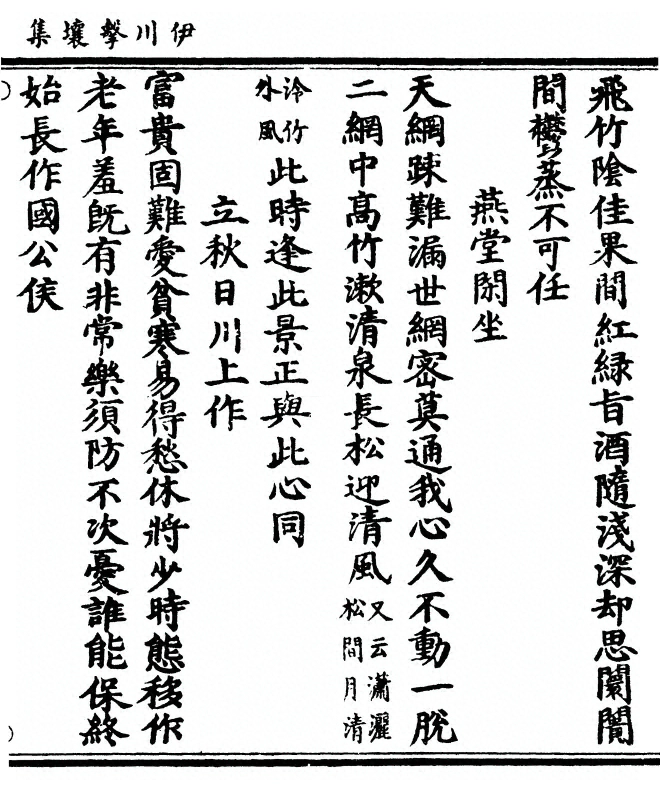 伊川擊壤集
飛竹隂佳果間紅緑旨酒隨淺深却思闤闠
間鬱蒸不可任
燕堂閑坐
天網踈難漏世網密莫通我心久不動一脫
二網中髙竹漱清泉長松迎清風又云瀟灑松間月清
泠竹外風此時逢此景正與此心同
立秋日川上作
富貴固難愛貧寒易得愁休將少時態移作
老年羞既有非常樂須防不次憂誰能保終
始長作國公侯